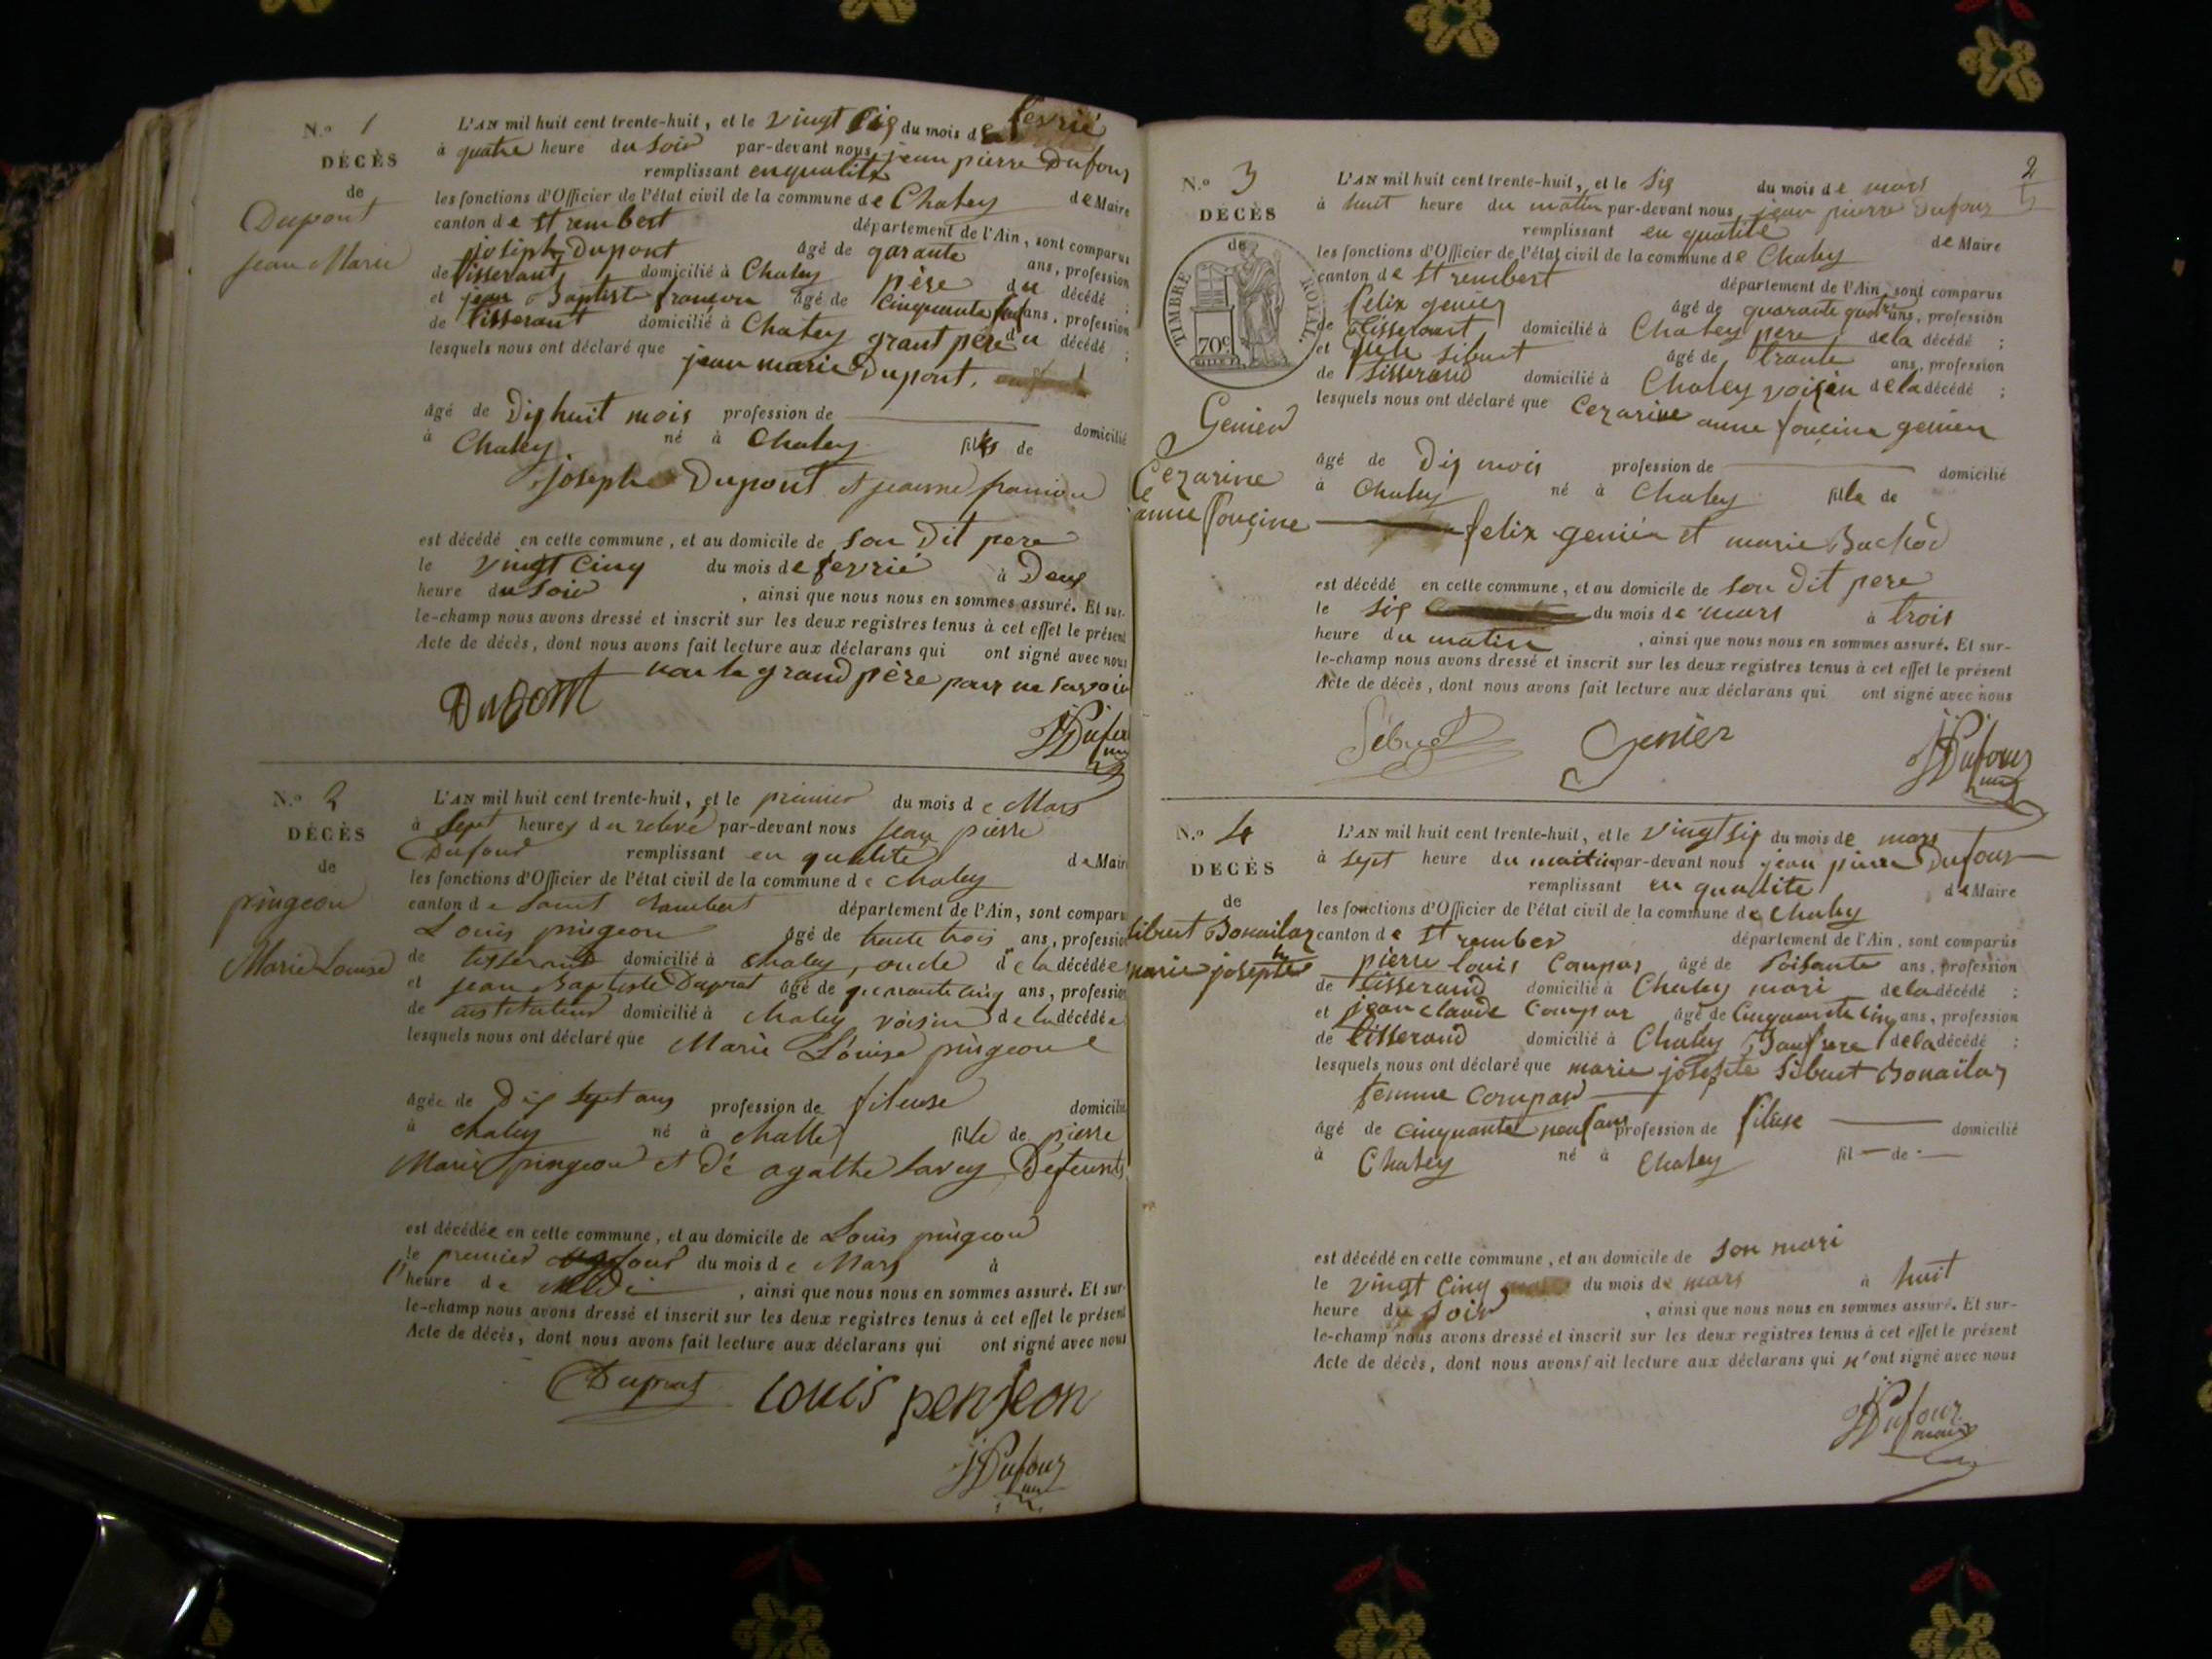 N.o 1
DÉCÈS
de
Dupont
jean Marie
L'AN mil huit cent trente-huit, et le vingt six du mois de fevrié
à quatre heure du soir par-devant nous, jean pierre Dufour
remplissant en qualité
les fonctions d'Officier de l'état civil de la commune de Chaley de Maire
canton de st rembert département de l'Ain, sont comparus
joseph Dupont âgé de qarante ans, profession
de tisserant domicilié à Chaley père du décédé ;
et jean Baptiste françon âgé de cinquante ans, profession
de tisserant domicilié à Chaley grant pere du décédé ;
lesquels nous ont déclaré que jean marie Dupont.
âgé de Dix huit mois profession de domicilié
à Chaley né à Chaley fils de
joseph Dupont et jeanne
est décédé en cette commune, et au domicile de son dit pere
le vingt cinq du mois de fevrié à Deux
heure du soir , ainsi que nous nous en sommes assuré. Et sur-
le-champ nous avons dressé et inscrit sur les deux registres tenus à cet effet le présent
Acte de décès, dont nous avons fait lecture aux déclarans qui ont signé avec nous
non le grand père pour ne savoir
Dupont
JPDufour
N.o 2
DÉCÈS
de
pingeon
Marie Louise
L'AN mil huit cent trente-huit, et le premier du mois de Mars
à Sept heures du par-devant nous jean pierre
Dufour remplissant en qualité de Maire
les fonctions d'Officier de l'état civil de la commune de chaley
canton de saint rambert département de l'Ain, sont comparus
Louis pingeon âgé de trente trois ans, profession
de tisserand domicilié à chaley, oncle de la décédée
et jean Baptiste Duprat âgé de quarante cinq ans, profession
de domicilié à chaley voisin de la décédée
lesquels nous ont déclaré que Marie Louise pingeon
âgée de Dix sept ans profession de fileuse domicilié
à chaley né à challey fille de pierre
Marie pingeon et de agathe Defunts
est décédée en cette commune, et au domicile de Louis pingeon
le premier du mois de Mars à
l' heure de Midi , ainsi que nous nous en sommes assuré. Et sur-
le-champ nous avons dressé et inscrit sur les deux registres tenus à cet effet le présent
Acte de décès, dont nous avons fait lecture aux déclarans qui ont signé avec nous
Duprat Louis penjeon
JPDufour
2
N.o 3
DÉCÈS
de
TIMBRE ROYAL.
70c
Genier
Cezarine
anne
L'AN mil huit cent trente-huit, et le six du mois de mars
à huit heure du matin par-devant nous jean pierre Dufour
remplissant en qualité de Maire
les fonctions d'Officier de l'état civil de la commune de Chaley
canton de st rembert département de l'Ain, sont comparus
felix genier âgé de quarante quatre ans, profession
de tisserant domicilié à Chaley pere de la décédé ;
et sibuet âgé de trante ans, profession
de tisserand domicilié à Chaley voisin de la décédé ;
lesquels nous ont déclaré que Cezarine anne genier
âgé de Dix mois profession de domicilié
à Chaley né à Chaley fille de
felix genier et marie
est décédé en cette commune, et au domicile de son dit pere
le six du mois de mars à trois
heure du matin , ainsi que nous nous en sommes assuré. Et sur-
le-champ nous avons dressé et inscrit sur les deux registres tenus à cet effet le présent
Acte de décès, dont nous avons fait lecture aux déclarans qui ont signé avec nous
Sibuet Genier JPDufour
N.o 4
DÉCÈS
de
sibuet Bonailar
marie josephte
L'AN mil huit cent trente-huit, et le vingt six du mois de mars
à sept heure du matin par-devant nous jean pierre Dufour
remplissant en qualité de Maire
les fonctions d'Officier de l'état civil de la commune de chaley
canton de st rember département de l'Ain, sont comparus
pierre louis Compar âgé de soisante ans, profession
de tisserand domicilié à Chaley mari de la décédé ;
et jean claude Compar âgé de cinquante cinq ans, profession
de tisserand domicilié à Chaley de la décédé ;
lesquels nous ont déclaré que marie josefte sibuet Bonailar
femme Compar
âgé de cinquante neuf ans profession de fileuse domicilié
à Chaley né à Chaley fil de
est décédé en cette commune, et au domicile de son mari
le vingt cinq du mois de mars à huit
heure du soir , ainsi que nous nous en sommes assuré. Et sur-
le-champ nous avons dressé et inscrit sur les deux registres tenus à cet effet le présent
Acte de décès, dont nous avons fait lecture aux déclarans qui n'ont signé avec nous
JPDufour
maire